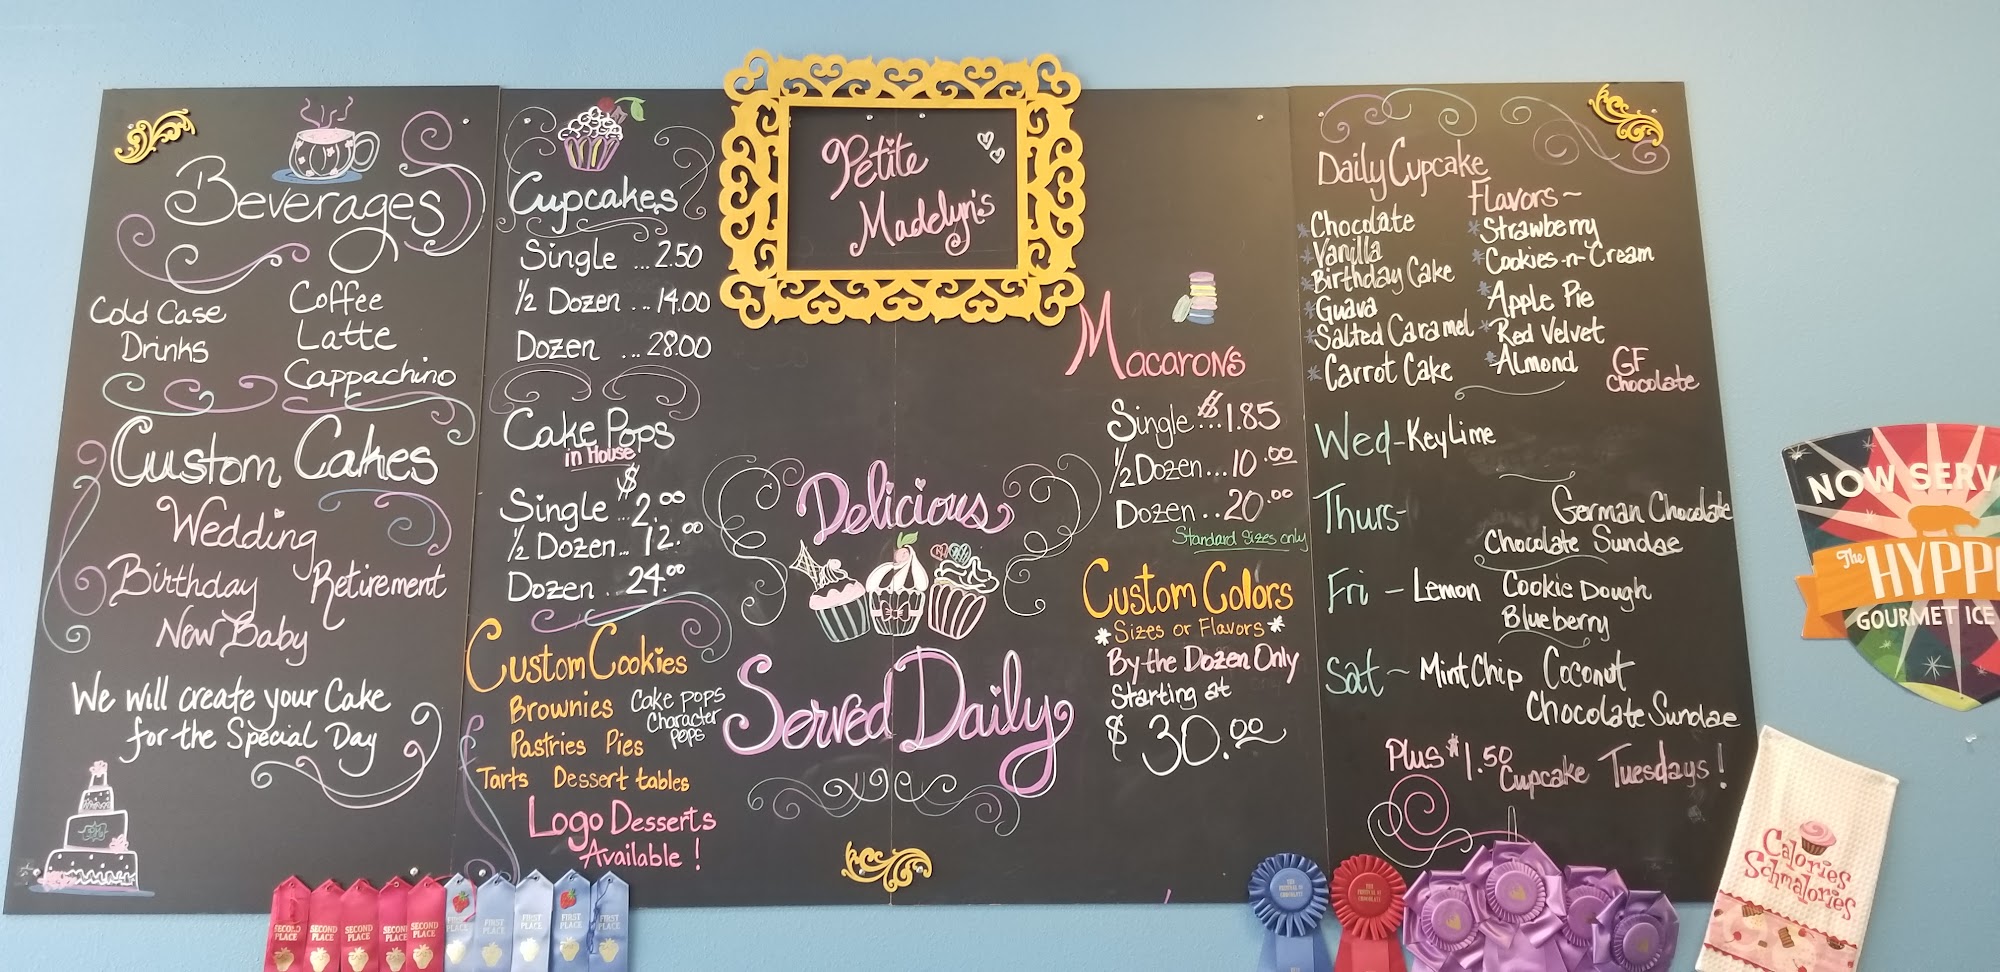 Beverages
Cold Case
Drinks
Coffee
Latte
Cappachino
Custom Cakes
Wedding
Birthday Retirement
New Baby
We will create your Cake
for the Special Day
Cupcakes
Single ... 2.50
1/2 Dozen ... 14.00
Dozen ... 28.00
Cake Pops
in House
Single ... $2.00
1/2 Dozen... 12.00
Dozen . 24.00
Custom Cookies
Brownies
Cake pops
Character
pops
Pastries Pies
Tarts Dessert tables
Logo Desserts
Available !
Petite
Madelyn's
Delicious
Served Daily
Macarons
Single ... $1.85
1/2 Dozen... 10.00
Dozen .. 20.00
Standard Sizes only
Custom Colors
*Sizes or Flavors*
By the Dozen Only
Starting at
$30.00
Daily Cupcake
Flavors ~
* Chocolate
* Vanilla
* Birthday Cake
* Guava
* Salted Caramel
* Carrot Cake
* Strawberry
* Cookies-n-Cream
* Apple Pie
* Red Velvet
* Almond
GF
Chocolate
Wed-Key Lime
Thurs-
German Chocolate
Chocolate Sundae
Fri - Lemon Cookie Dough
Blueberry
Sat ~ Mint Chip Coconut
Chocolate Sundae
Plus $1.50
Cupcake Tuesdays !
NOW SERV
The HYPP
GOURMET ICE
Calories
Schmalories
SECOND PLACE
SECOND PLACE
SECOND PLACE
SECOND PLACE
SECOND PLACE
FIRST PLACE
FIRST PLACE
FIRST PLACE
FIRST PLACE
FIRST PLACE